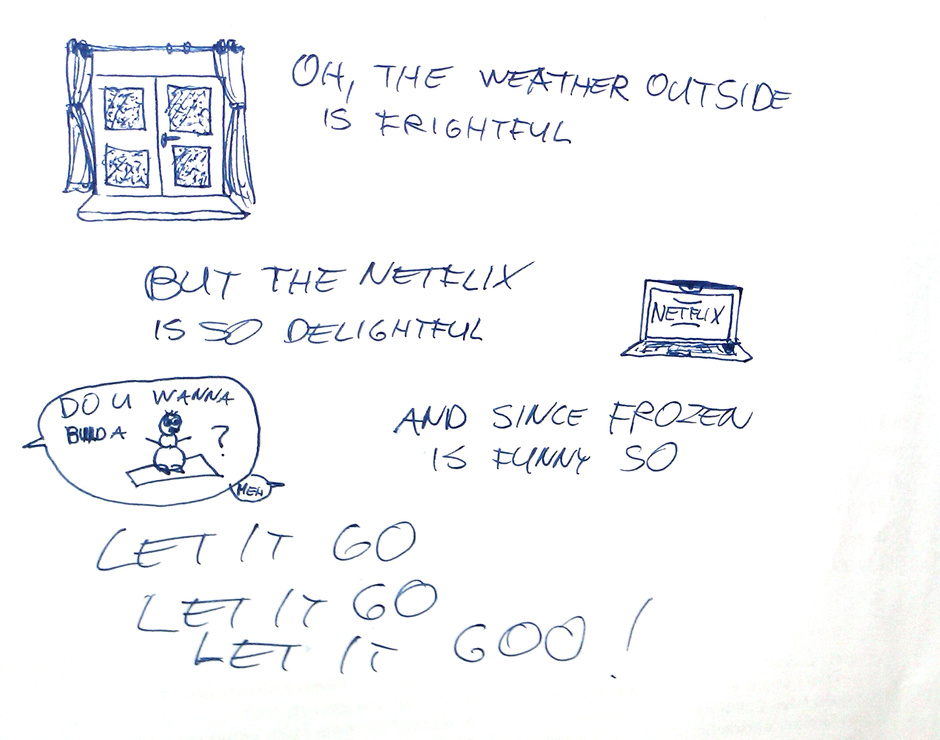 OH, THE WEATHER OUTSIDE
IS FRIGHTFUL
BUT THE NETFLIX
IS SO DELIGHTFUL
NETFLIX
DO U WANNA
BUILD A
?
MEH
AND SINCE FROZEN
IS FUNNY SO
LET IT GO
LET IT GO
LET IT GOO!